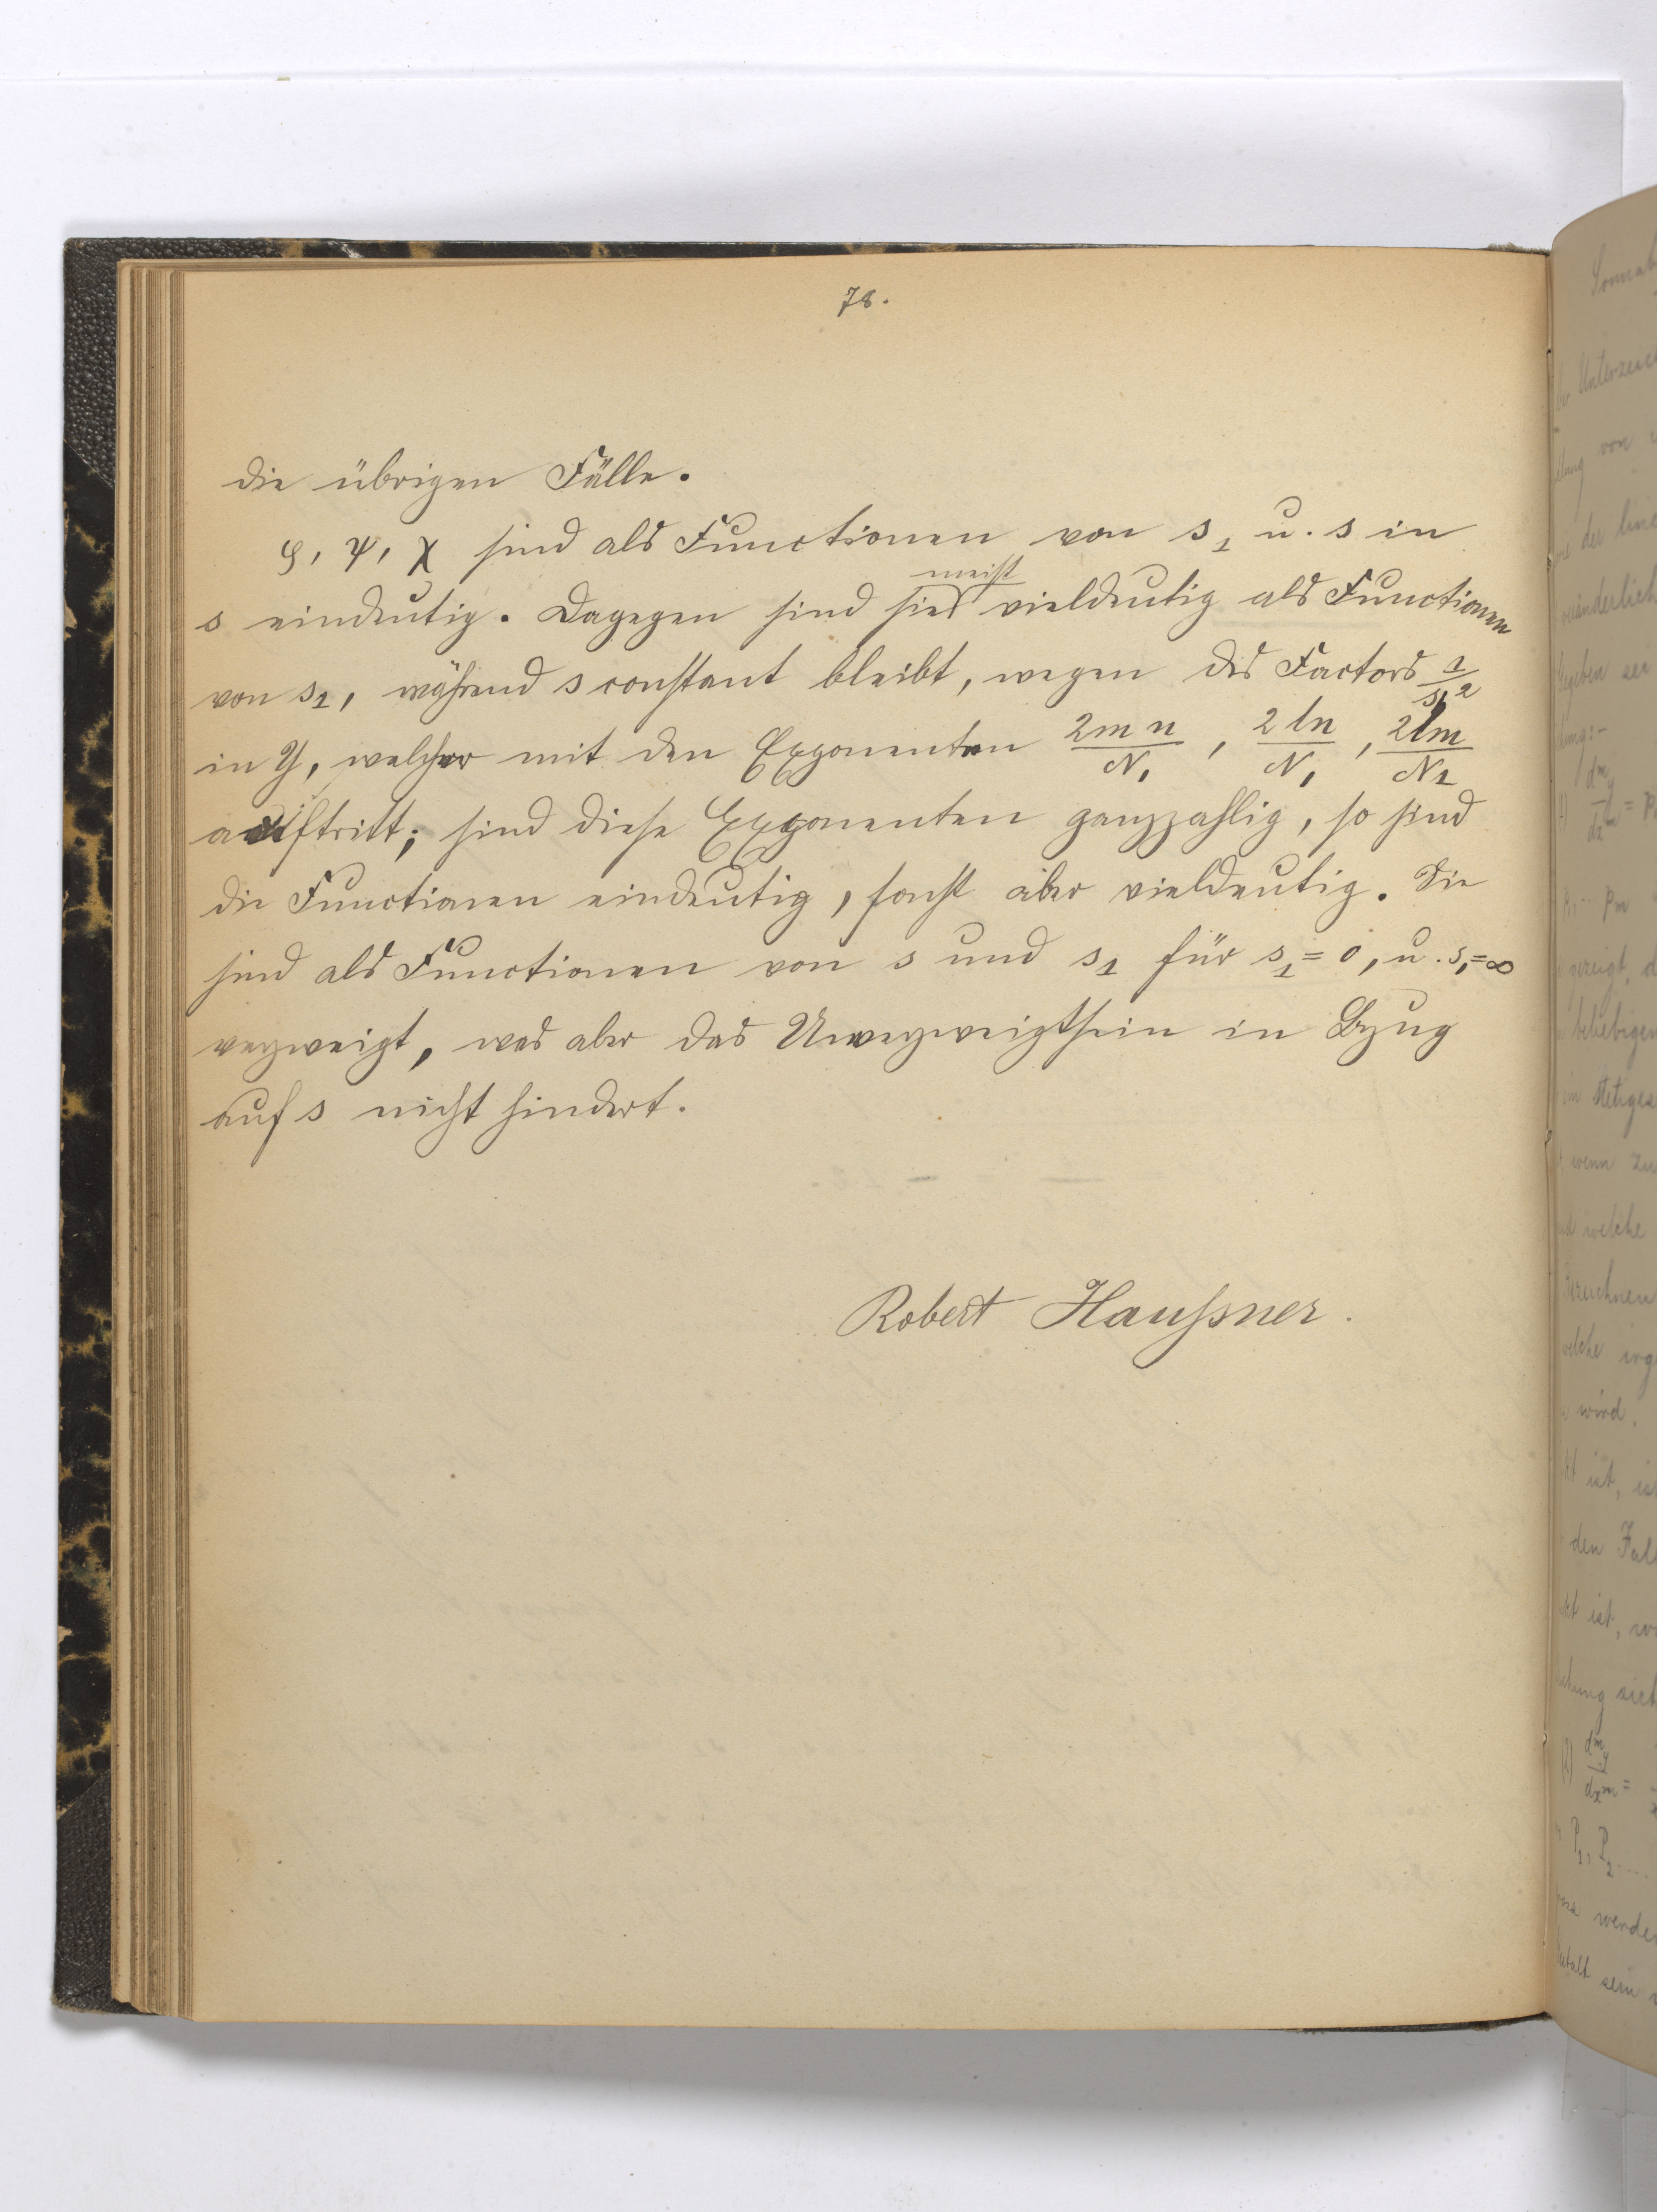 78.
die übrigen Fälle.
φ, ψ, χ sind als Functionen von s₁ u. s in
meist
s eindeutig. Dagegen sind sie vieldeutig als Functionen
von s₁, während s constant bleibt, wegen des Factors 1/s₁²
in Y, welcher mit den Exponenten 2mn/N₁, 2ln/N₁, 2lm/N₁
auftritt; sind diese Exponenten ganzzahlig, so sind
die Functionen eindeutig, sonst aber vieldeutig. Sie
sind als Functionen von s und s₁ für s₁ = 0, u. s₁ = ∞
verzweigt, was aber das Unverzweigtsein in Bezug
auf s nicht hindert.
Robert Haußner.
Unterzeic
von
der line
gegeben sei
beliebigen
wenn zu
welche
Bezeichnen
welche irg
wird.
ist, is
den Fal
ist, w
(2) dᵐy/dxᵐ =
P₁, P₂ ....
werde
sein